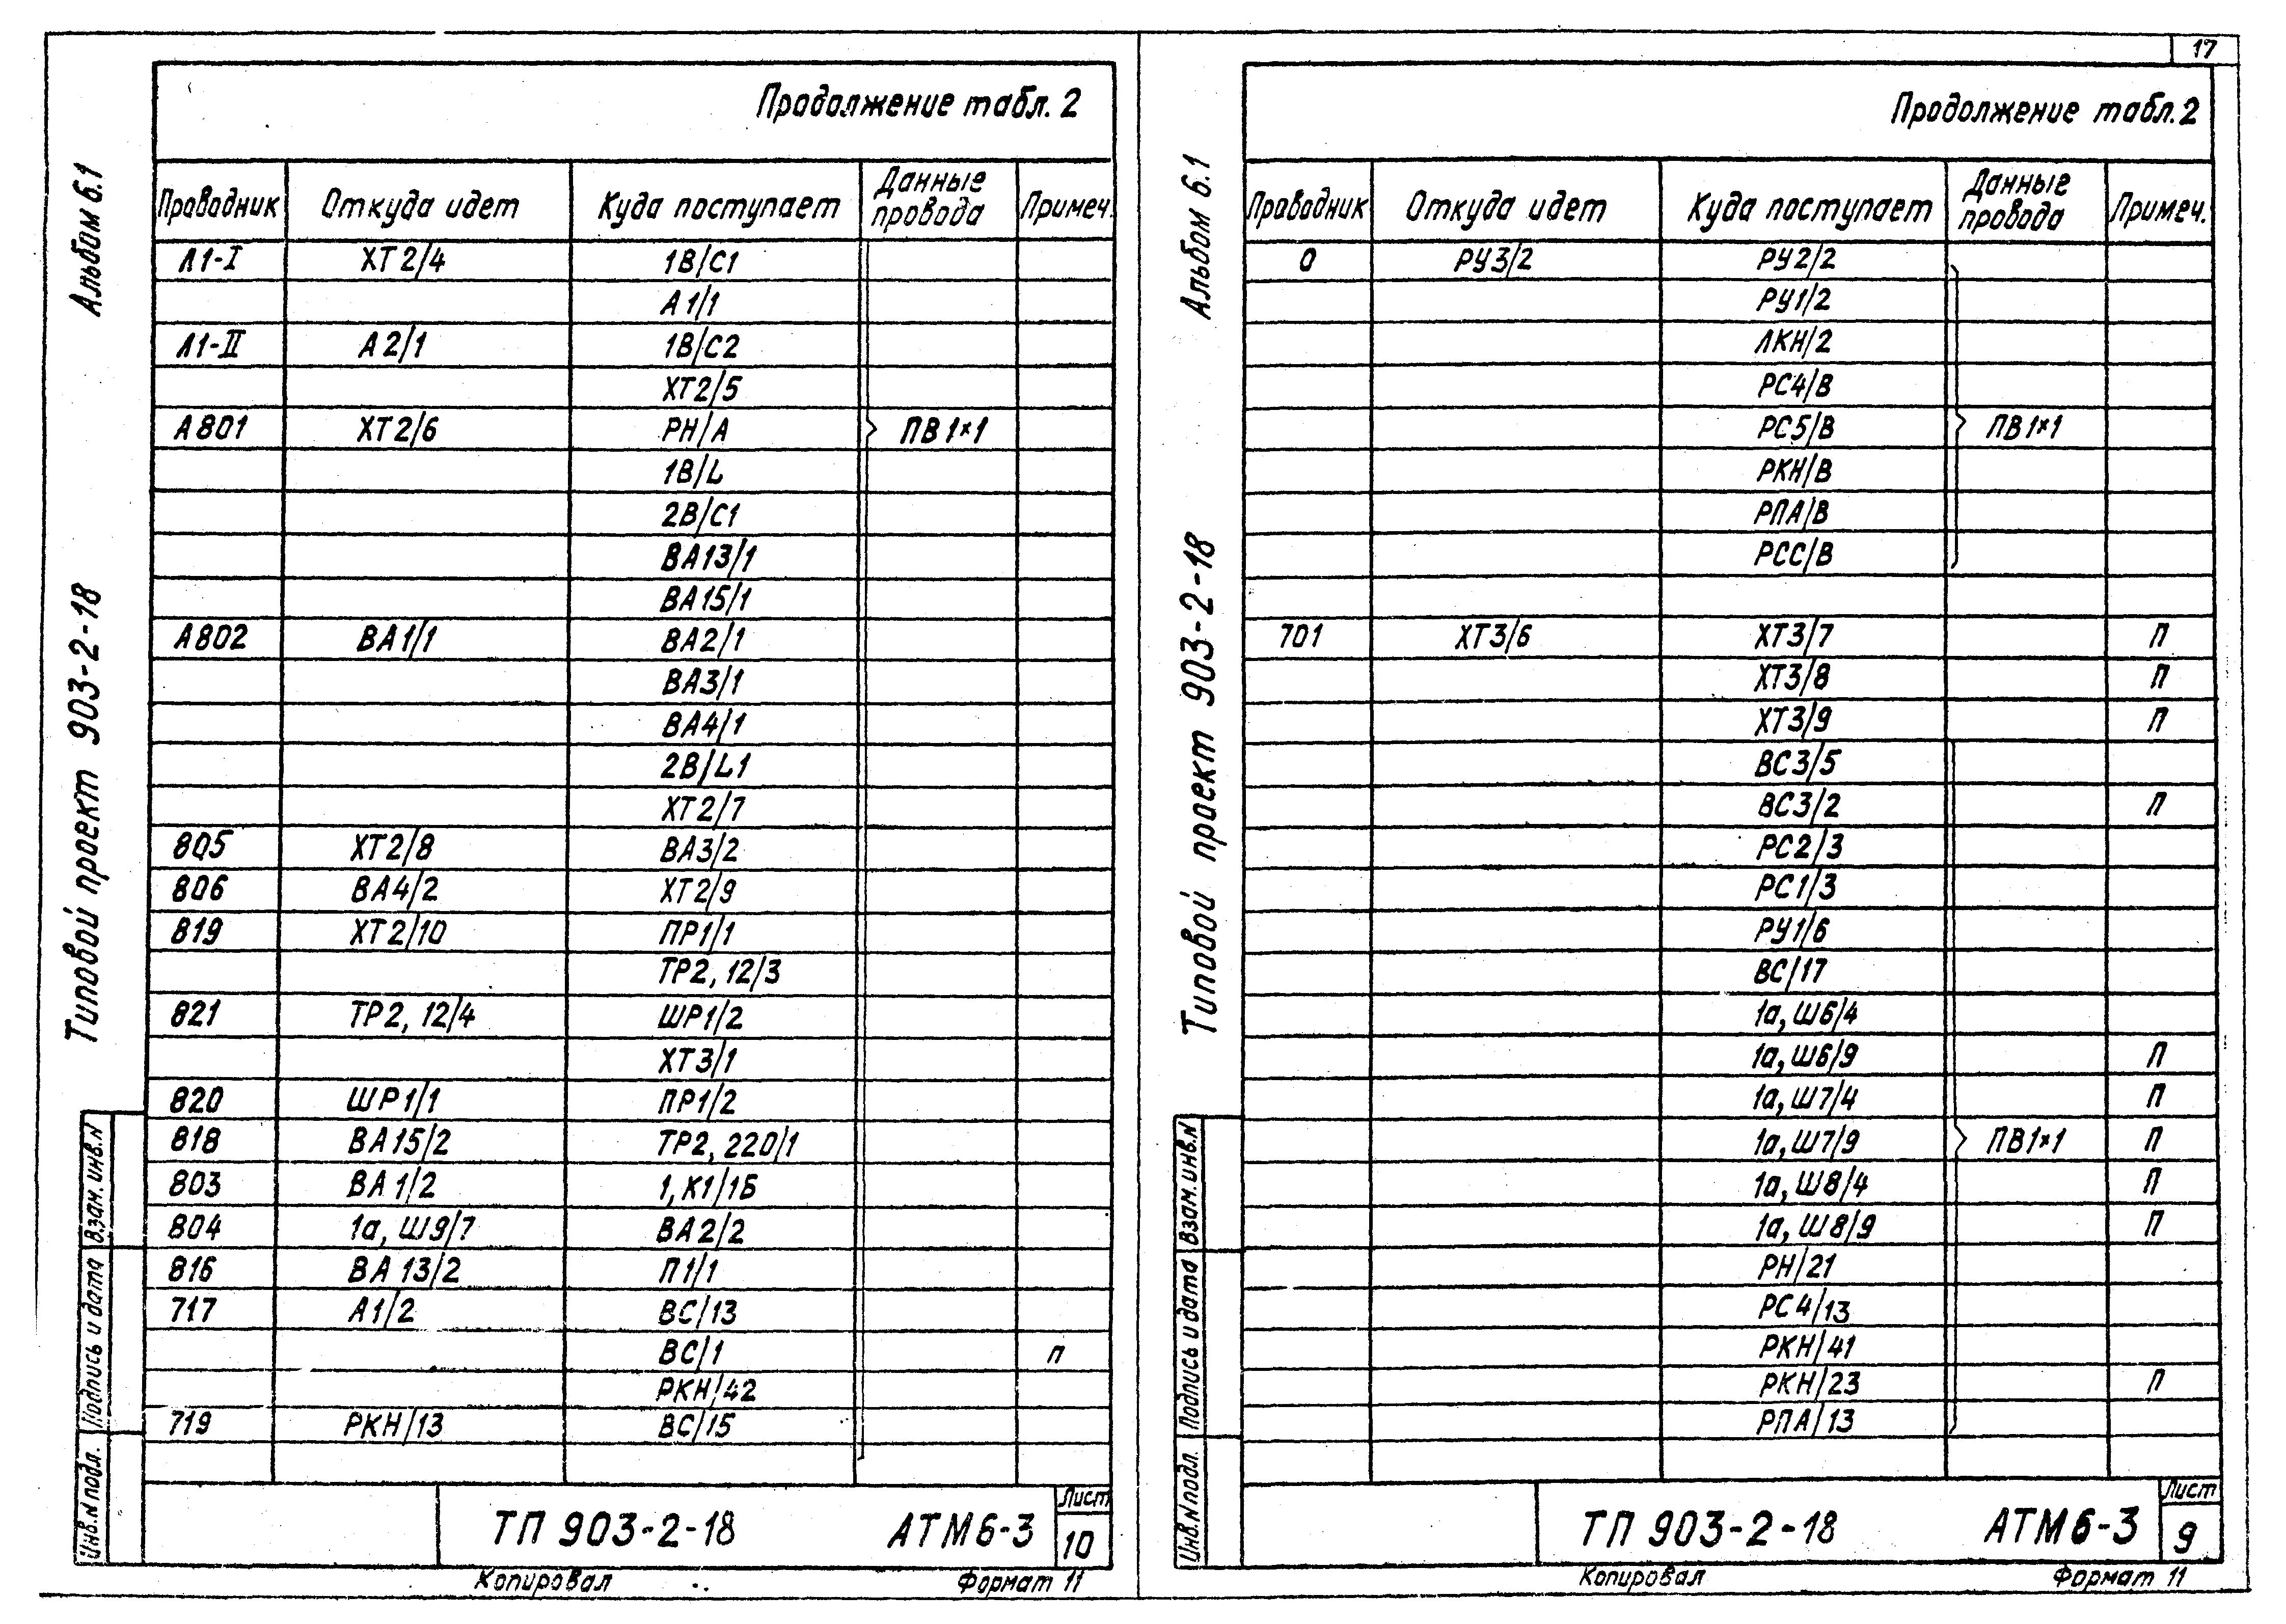 17
Альбом 6.1
Типовой проект 903-2-18
Продолжение табл. 2
Проводник Откуда идет Куда поступает Данные провода Примеч.
Л1-I ХТ2/4 1В/С1
А1/1
Л1-II А2/1 1В/С2
ХТ2/5
А801 ХТ2/6 РН/А ПВ1×1
1В/L
2В/С1
ВА13/1
ВА15/1
А802 ВА1/1 ВА2/1
ВА3/1
ВА4/1
2В/L1
ХТ2/7
805 ХТ2/8 ВА3/2
806 ВА4/2 ХТ2/9
819 ХТ2/10 ПР1/1
ТР2, 12/3
821 ТР2, 12/4 ШР1/2
ХТ3/1
820 ШР1/1 ПР1/2
818 ВА15/2 ТР2, 220/1
803 ВА1/2 1, К1/1Б
804 1а, Ш9/7 ВА2/2
816 ВА13/2 П1/1
717 А1/2 ВС/13
ВС/1 П
РКН/42
719 РКН/13 ВС/15
Инв.N подл. Подпись и дата Взам.инв.N
ТП 903-2-18 АТМ6-3 Лист 10
Копировал Формат 11
Альбом 6.1
Типовой проект 903-2-18
Продолжение табл. 2
Проводник Откуда идет Куда поступает Данные провода Примеч.
0 РУ3/2 РУ2/2
РУ1/2
ЛКН/2
РС4/В
РС5/В ПВ1×1
РКН/В
РПА/В
РСС/В
701 ХТ3/6 ХТ3/7 П
ХТ3/8 П
ХТ3/9 П
ВС3/5
ВС3/2 П
РС2/3
РС1/3
РУ1/6
ВС/17
1а, Ш6/4
1а, Ш6/9 П
1а, Ш7/4 П
1а, Ш7/9 ПВ1×1 П
1а, Ш8/4 П
1а, Ш8/9 П
РН/21
РС4/13
РКН/41
РКН/23 П
РПА/13
Инв.N подл. Подпись и дата Взам.инв.N
ТП 903-2-18 АТМ6-3 Лист 9
Копировал Формат 11